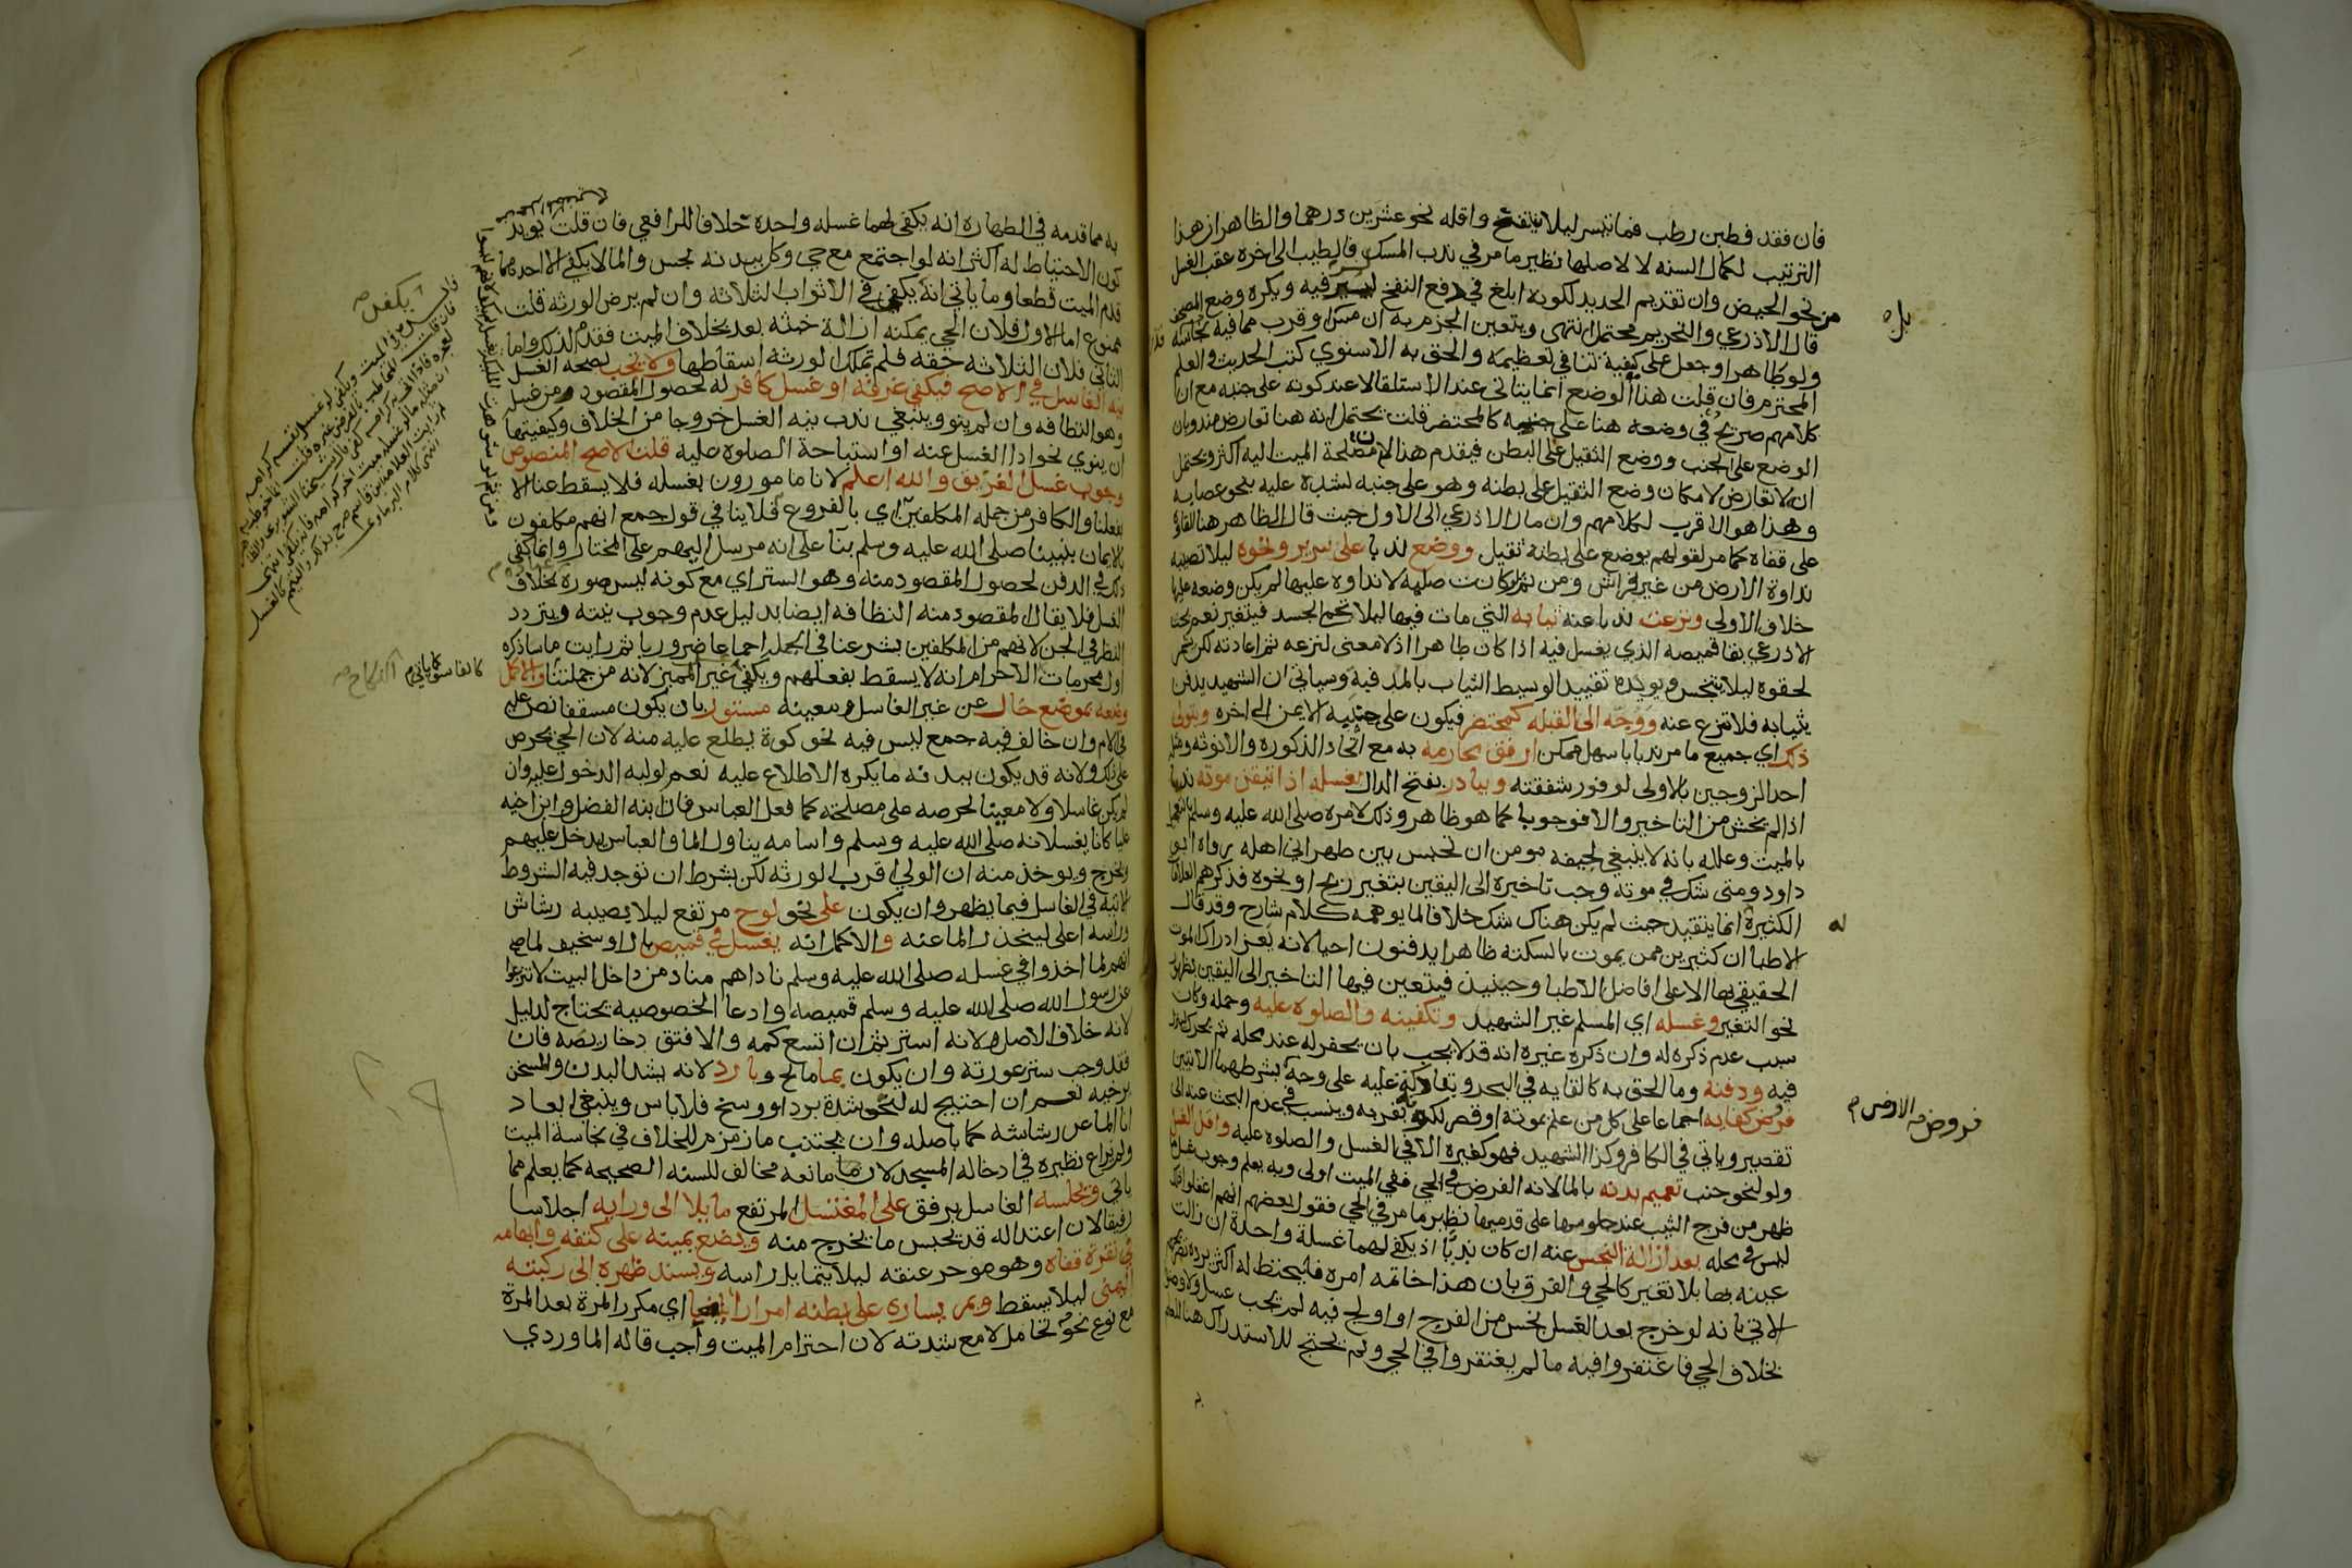 فان فقد فطين رطب فما تيسر ليلا ينتفخ واقله نحو عشرين درهما والظاهر ان هذا
الترتيب لكمال السنه لا لاصلها نظير ما مر في ندب المسك فالطيب الى اخره عقب الغسل
من نحو الحيض وان تقديم الحديد لكونه ابلغ في دفع النفخ لسر فيه ويكره وضع المصحف
قال الاذرعي والتحريم محتمل انتهى ويتعين الجزم به ان مس او قرب مما فيه نجاسة
ولو طاهرا وجعل على كيفية تنافي تعظيمه والحق به الاسنوي كتب الحديث والعلم
المحترم فان قلت هذا الوضع انما يتاتى عند الاستلقا لا عند كونه على جنبه مع ان
كلامهم صريح في وضعه هنا على جنبه كالمحتضر قلت يحتمل انه هنا تعارض مندوبان
الوضع على الجنب ووضع الثقيل على البطن فيقدم هذا لان مصلحة الميت اليه اكثر ويحتمل
ان لا تعارض لامكان وضع الثقيل على بطنه وهو على جنبه لشده عليه بنحو عصابه
وهذا هو الاقرب لكلامهم وان مال الاذرعي الى الاول حيث قال الظاهر هنا القاؤه
على قفاه كما مر لقولهم يوضع على بطنه ثقيل ووضع ندبا على سرير ونحوه ليلا تصيبه
نداوة الارض من غير فراش ومن ثم لو كانت صلبه لا نداوه عليها لم يكن وضعه عليها
خلاف الاولى ونزعت ندبا عنه ثيابه التي مات فيها ليلا تحم الجسد فيتغير نعم بحث
الاذرعي بقا قميصه الذي يغسل فيه اذا كان طاهرا اذ لا معنى لنزعه ثم اعادته لكن يشمر
لحقوه ليلا يتنجس ويويده تقييد الوسيط الثياب بالمدفيه وسياتي ان الشهيد يدفن
بثيابه فلا تنزع عنه ووجه الى القبله كمحتضر فيكون على جنبه الايمن الى اخره ويتولى
ذلك اي جميع ما مر ندبا باسهل ممكن ارفق محارمه به مع اتحاد الذكوره والانوثه ومثله
احد الزوجين بالاولى لوفور شفقته ويبادر بفتح الدال بغسله اذا تيقن موته ندبا
اذا لم يخش من التاخير والا فوجوبا كما هو ظاهر وذلك لامره صلى الله عليه وسلم بالتعجيل
بالميت وعلله بانه لا ينبغي لجيفه مومن ان تحبس بين ظهراني اهله رواه ابو
داود ومتى شك في موته وجب تاخيره الى اليقين بتغير ريح او نحوه فذكرهم العلامات
الكثيرة انما يتقيد حيث لم يكن هناك شك خلافا لما يوهمه كلام شارح وقد قال
الاطبا ان كثيرين ممن يموت بالسكته ظاهرا يدفنون احيا لانه يعز ادراك الموت
الحقيقي بها الا على افاضل الاطبا وحينيذ فيتعين فيها التاخير الى اليقين بظهور
نحو التغير وغسله اي المسلم غير الشهيد وتكفينه والصلوه عليه وحمله وكان
سبب عدم ذكره له وان ذكره غيره انه قد لا يجب بان يحفر له عند محله ثم يحرك لينزل
فيه ودفنه وما الحق به كالقايه في البحر وبنا دكة عليه على وجه بشرطهما الاتيين
فروض كفايه اجماعا على كل من علم بموته او قصر لكونه بقربه وينسب في عدم البحث عنه الى
تقصير وياتي في الكافر وكذا الشهيد فهو كغيره الا في الغسل والصلوه عليه واقل الغسل
ولو لنحو جنب تعميم بدنه بالما لانه الفرض في الحي ففي الميت اولى وبه يعلم وجوب غسل ما
ظهر من فرج الثيب عند جلوسها على قدميها نظير ما مر في الحي فقول بعضهم انهم اغفلوا ذلك
ليس في محله بعد ازالة النجس عنه ان كان ندبا اذ يكفي لهما غسلة واحدة ان زالت
عينه بها بلا تغير كالحي والفرق بان هذا خاتمه امره فليحتط له اكثر يرده
الاتي بانه لو خرج بعد الغسل نجس من الفرج او اولج فيه لم يجب غسل ولا وضو
بخلاف الحي فاغتفروا فيه ما لم يغتفروا في الحي ولم يحتج للاستدراك هنا للعلم
فروض
الارض م
به مما قدمه في الطهاره انه يكفي لهما غسله واحده خلافا للرافعي فان قلت يويد
كون الاحتياط له اكثر انه لو اجتمع مع حي وكل ببدنه نجس والما لا يكفي الا احدهما
قدم الميت قطعا وما ياتي انه يكفي في الاثواب الثلاثه وان لم يرض الورثه قلت
ممنوع اما الاول فلان الحي يمكنه ازالة خبثه بعد بخلاف الميت فقدم لذلك واما
الثاني فلان الثلاثه حقه فلم تملك الورثه اسقاطها ولا تجب لصحه الغسل
نيه الغاسل في الاصح فيكفي غرقه او غسل كافر له لحصول المقصود من غسله
وهو النظافه وان لم ينو وينبغي ندب نيه الغسل خروجا من الخلاف وكيفيتها
ان ينوي نحو ادا الغسل عنه او استباحة الصلوه عليه قلت الاصح المنصوص
وجوب غسل الغريق والله اعلم لانا مامورون بغسله فلا يسقط عنا الا
بفعلنا والكافر من جمله المكلفين اي بالفروع فلا ينافي قول جمع انهم مكلفون
بالايمان بنبينا صلى الله عليه وسلم بنا على انه مرسل اليهم على المختار وانما كفى
ذلك في الدفن لحصول المقصود منه وهو الستر اي مع كونه ليس صوره بخلاف
الغسل فلا يقال المقصود منه النظافه ايضا بدليل عدم وجوب نيته ويتردد
النظر في الجن لانهم من المكلفين بشرعنا في الجمله اجماعا ضروريا ثم رايت ما ساذكره
اول محرمات الاحرام انه لا يسقط بفعلهم ويكفي غير المميز لانه من جملتنا والاكمل
وضعه بموضع خال عن غير الغاسل ومعينه مستور بان يكون مسقفا نص عليه
في الام وان خالف فيه جمع ليس فيه نحو كوة يطلع عليه منه لان الحي يحرص
على ذلك ولانه قد يكون ببدنه ما يكره الاطلاع عليه نعم لوليه الدخول عليه وان
لم يكن غاسلا ولا معينا لحرصه على مصلحته كما فعل العباس فان ابنه الفضل وابن اخيه
عليا كانا يغسلانه صلى الله عليه وسلم واسامه يناول الما والعباس يدخل عليهم
ويخرج ويوخذ منه ان الولي اقرب الورثه لكن بشرط ان توجد فيه الشروط
الاتيه في الغاسل فيما يظهر وان يكون على نحو لوح مرتفع ليلا يصيبه رشاش
وراسه اعلى لينحدر الما عنه والاكمل انه يغسل في قميص بال او سخيف لما صح
انهم لما اخذوا في غسله صلى الله عليه وسلم ناداهم مناد من داخل البيت لا تنزعوا
عن رسول الله صلى الله عليه وسلم قميصه وادعا الخصوصيه يحتاج لدليل
لانه خلاف الاصل ولانه استر ثم ان اتسع كمه والا فتق دخاريصه فان
فقد وجب ستر عورته وان يكون بما مالح وبارد لانه يشد البدن والمسخن
يرخيه نعم ان احتيج له لنحو شدة برد او وسخ فلا باس وينبغي ابعاد
انا الما عن رشاشه كما باصله وان يجتنب ما زمزم للخلاف في نجاسة الميت
ولم يراع نظيره في ادخاله المسجد لان ما مانعه مخالف للسنه الصحيحه كما يعلم مما
ياتي ويجلسه الغاسل برفق على المغتسل المرتفع مايلا الى ورايه اجلاسا
رفيقا لان اعتداله قد يحبس ما يخرج منه ويضع يمينه على كتفه وابهامه
في نقرة قفاه وهو موخر عنقه ليلا يتمايل راسه ويسند ظهره الى ركبته
اليمنى ليلا يسقط ويمر يساره على بطنه امرارا بليغا اي مكررا المرة بعد المرة
مع نوع نحو تحامل لا مع شدته لان احترام الميت واجب قاله الماوردي